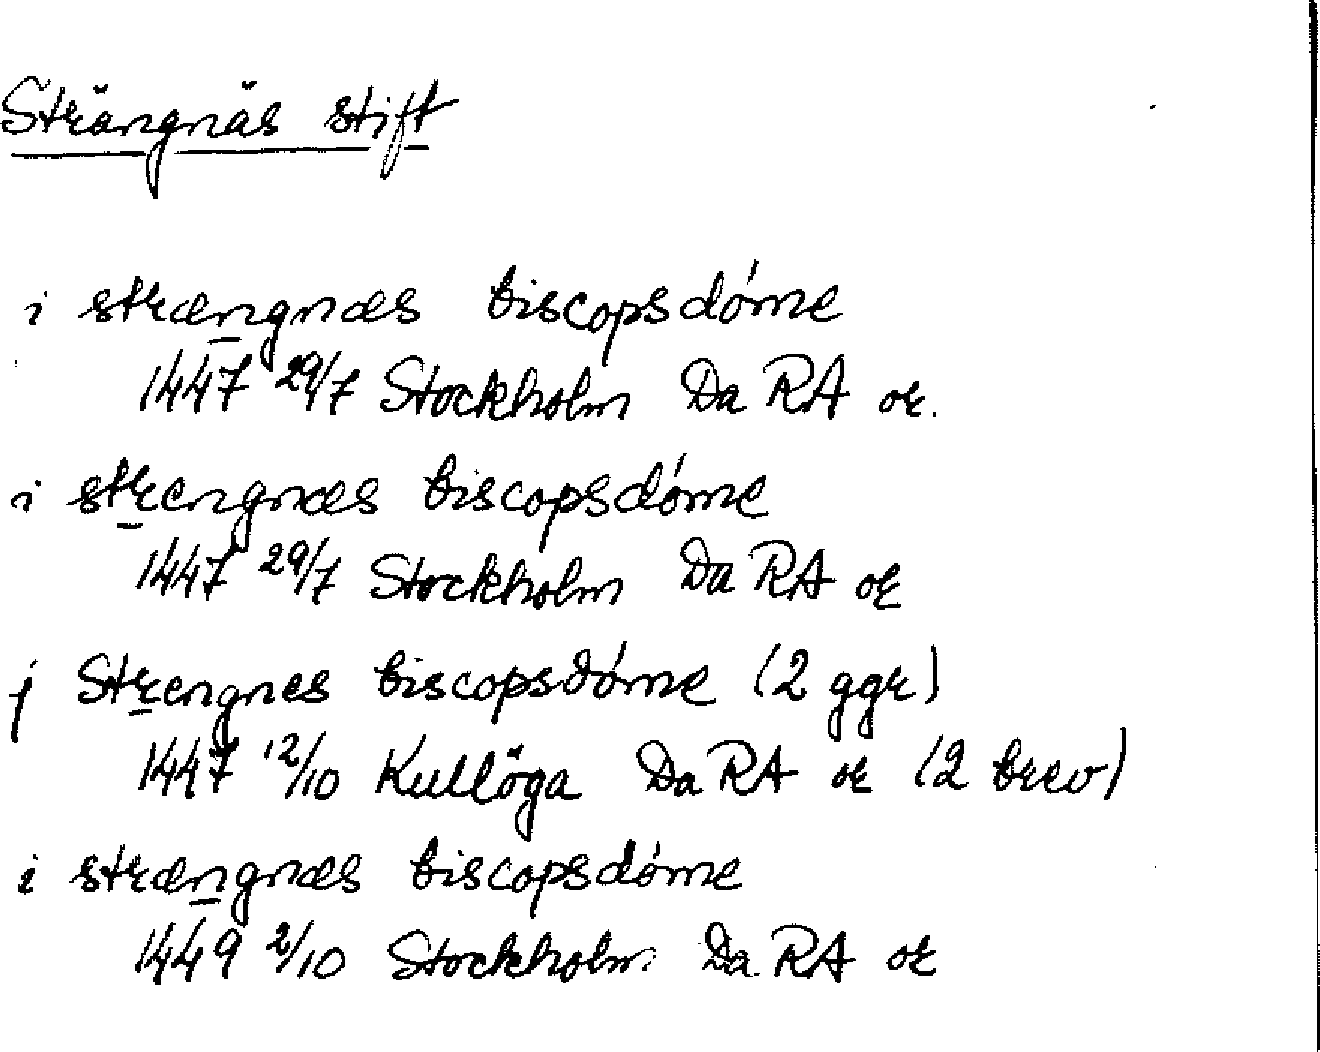 Strängnäs stift
i strængnæs biscopsdóme
1447 29/7 Stockholm Da RA or.
i strengnæs biscopsdóme
1447 29/7 Stockholm Da RA or
j Strengnes biscopsdóme (2 ggr)
1447 12/10 Kullöga Da RA or (2 brev)
i strængnæs biscopsdóme
1449 2/10 Stockholm Da RA or